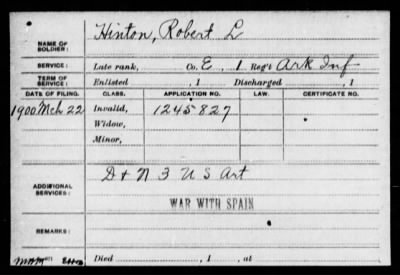 NAME OF SOLDIER: Hinton, Robert L
SERVICE: Late rank, Co. E, 1 Reg't Ark Inf
TERM OF SERVICE: Enlisted , 1 Discharged , 1
DATE OF FILING. CLASS. APPLICATION NO. LAW. CERTIFICATE NO.
1900 Mch 22 Invalid, 1245827
Widow,
Minor,
ADDITIONAL SERVICES: D + N 3 U S Art
WAR WITH SPAIN
REMARKS:
Died , 1 , at